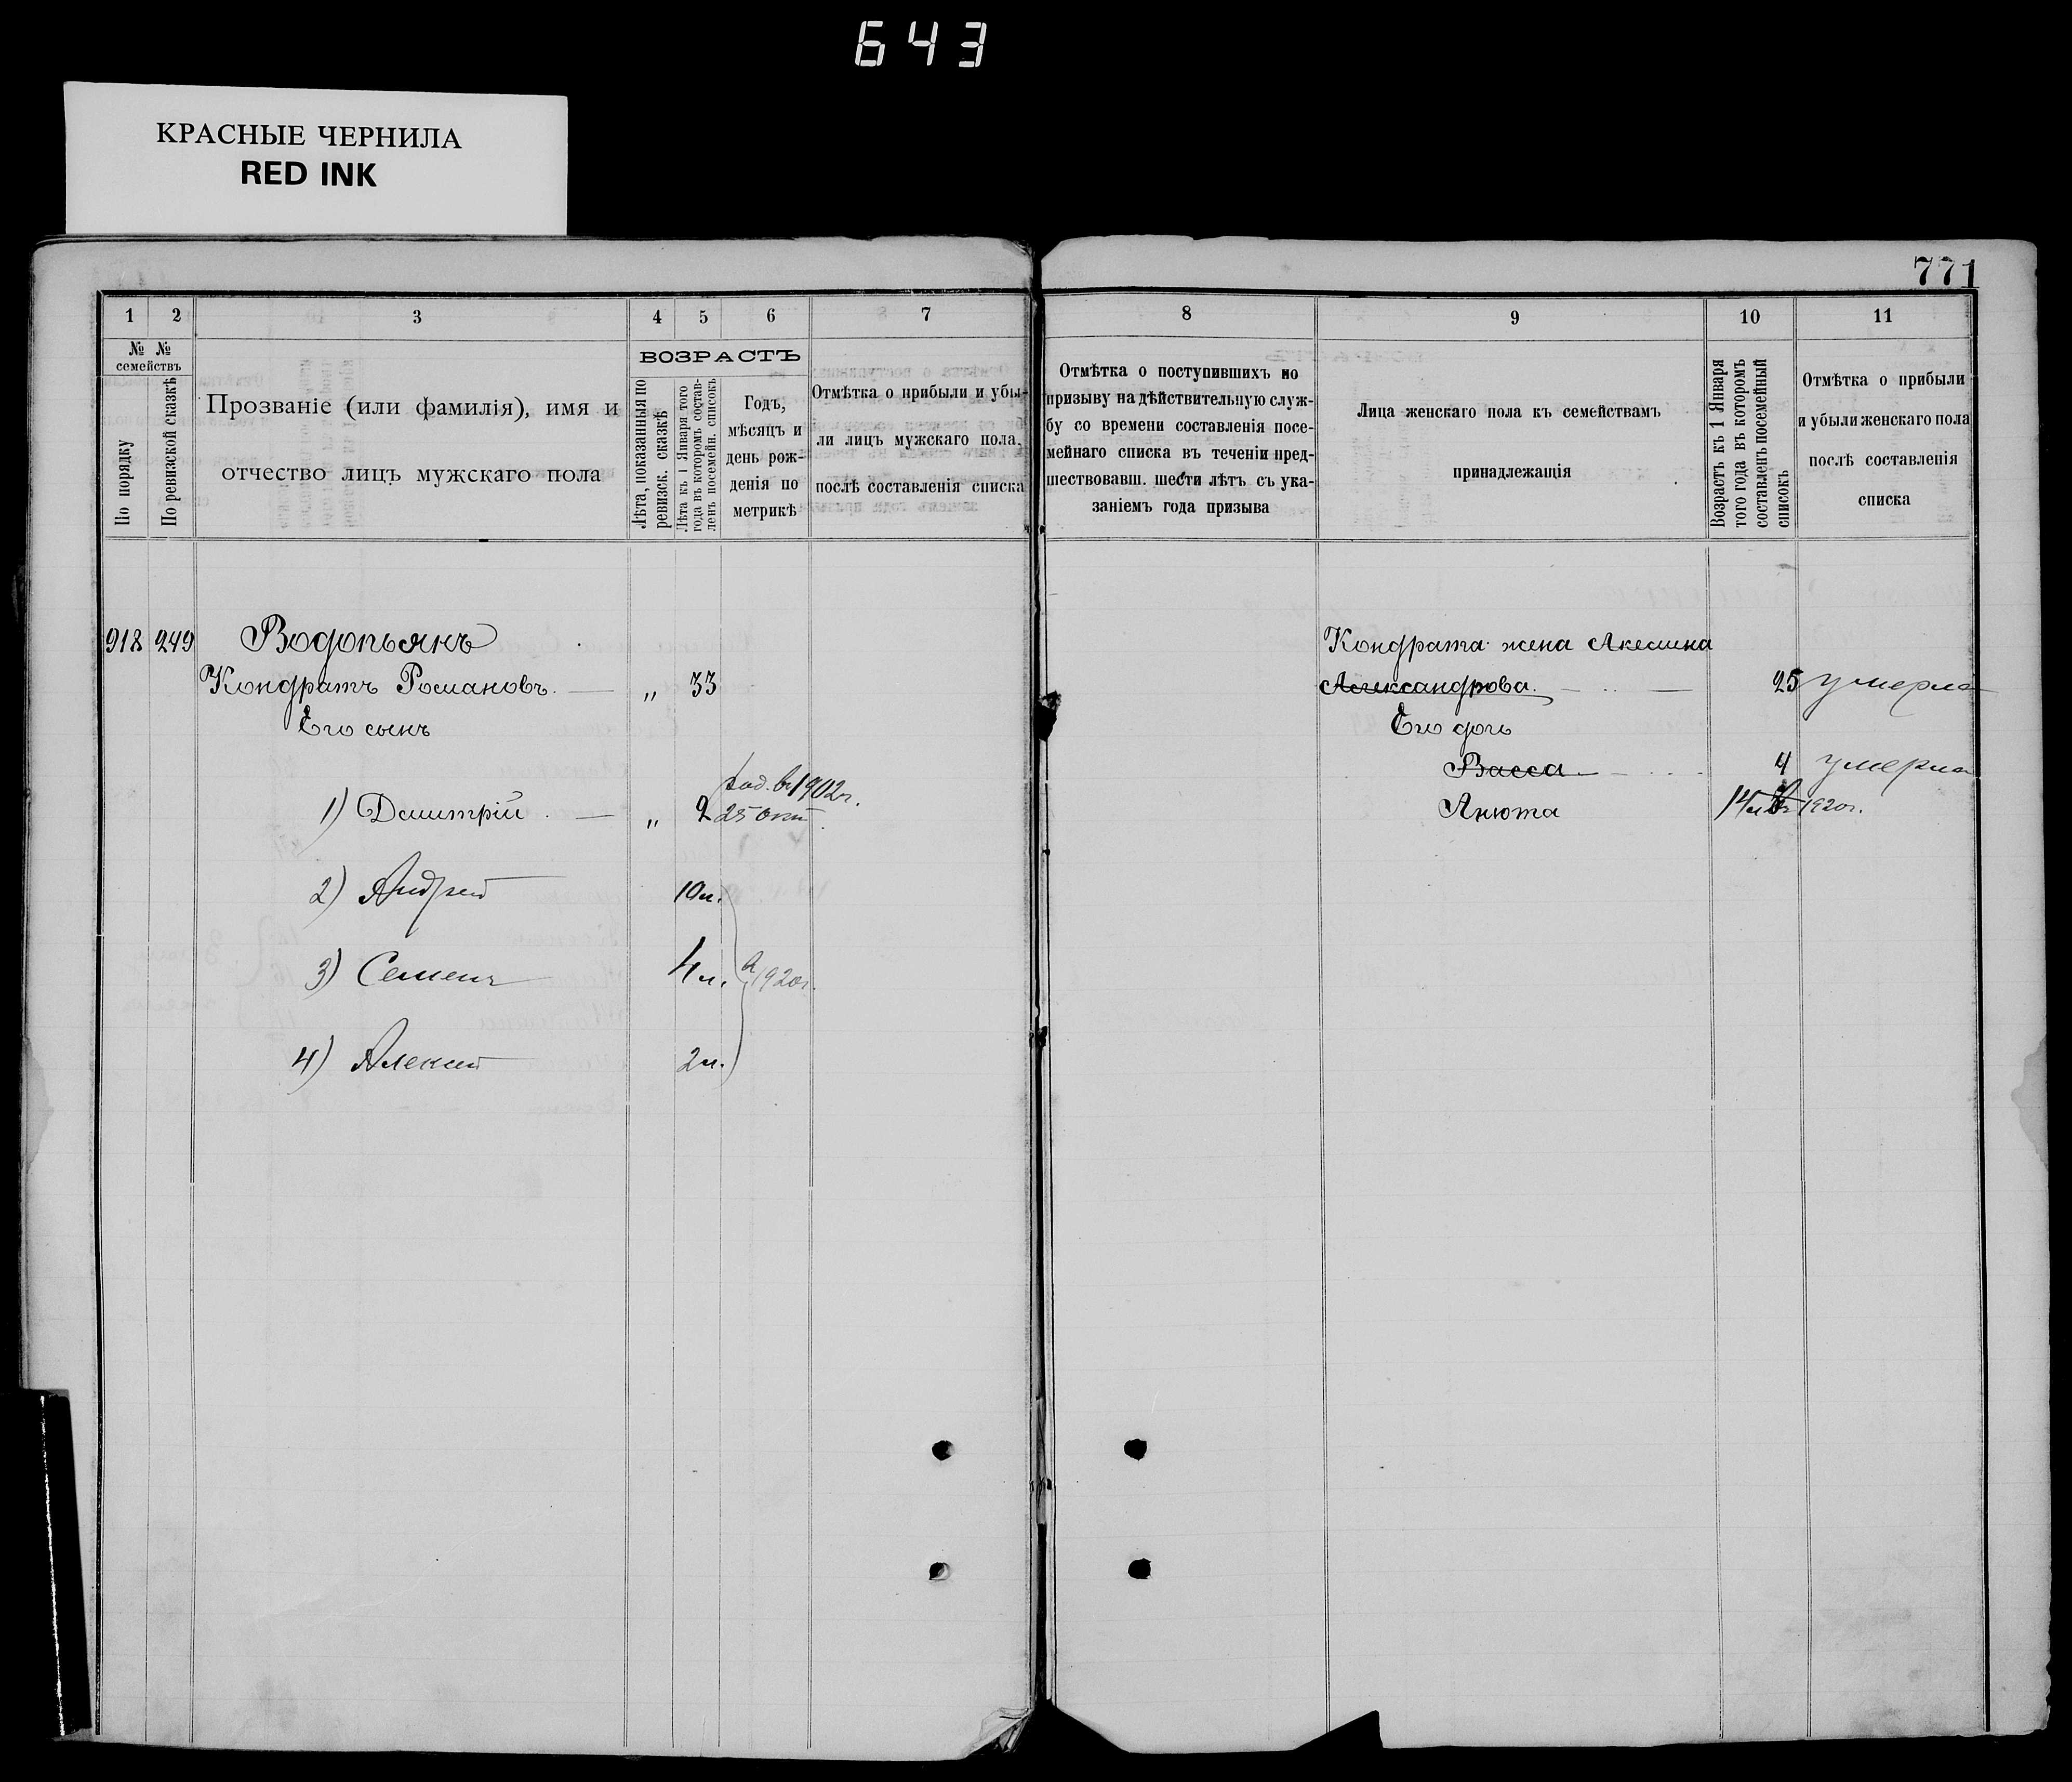 643
КРАСНЫЕ ЧЕРНИЛА
RED INK
771
1 2 3 4 5 6 7
№ № семействъ
По порядку
По ревизской сказкѣ
Прозваніе (или фамилія), имя и
отчество лицъ мужскаго пола
ВОЗРАСТЪ
Лѣта, показанныя по
ревизск. сказкѣ
Лѣта къ 1 Января того
года въ которомъ состав-
ленъ посемейн. списокъ
Годъ,
мѣсяцъ и
день рож-
денія по
метрикѣ
Отмѣтка о прибыли и убы-
ли лицъ мужскаго пола,
послѣ составленія списка
8 9 10 11
Отмѣтка о поступившихъ по
призыву на дѣйствительную служ-
бу со времени составленія посе-
мейнаго списка въ теченіи пред-
шествовавш. шести лѣтъ съ ука-
заніемъ года призыва
Лица женскаго пола къ семействамъ
принадлежащія
Возрастъ къ 1 Января
того года въ которомъ
составленъ посемейный
списокъ
Отмѣтка о прибыли
и убыли женскаго пола
послѣ составленія
списка
918 249 Водопьянъ
Кондратъ Романовъ. — „ 33
Его сынъ
род. въ 1902г.
1) Дмитрій . — „ 2 25 окт.
2) Андрей 10 л.
3) Семенъ 4 л. в 1920г.
4) Алексей 2 л.
Кондрата жена Акемина
Александрова. — 25 умерла
Его дочь
Васса 4 умерла
Анюта 14 л. въ 1920г.